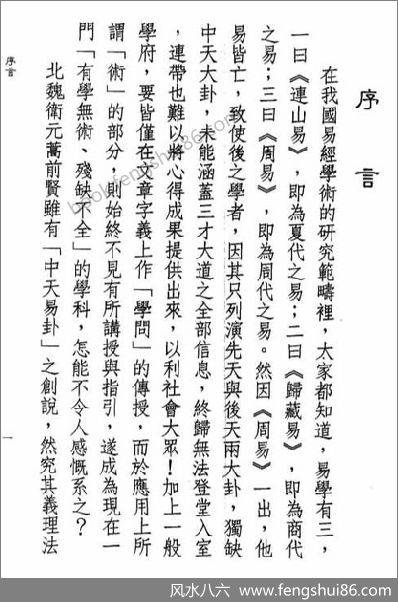 序言
序言
在我國易經學術的研究範疇裡，大家都知道，易學有三，
一曰《連山易》，即為夏代之易；二曰《歸藏易》，即為商代
之易；三曰《周易》，即為周代之易。然因《周易》一出，他
易皆亡，致使後之學者，因其只列演先天與後天兩大卦，獨缺
中天大卦，未能涵蓋三才大道之全部信息，終歸無法登堂入室
，連帶也難以將心得成果提供出來，以利社會大眾！加上一般
學府，要皆僅在文章字義上作「學問」的傳授，而於應用上所
謂「術」的部分，則始終不見有所講授與指引，遂成為現在一
門「有學無術、殘缺不全」的學科，怎能不令人感慨系之？
北魏衛元蒿前賢雖有「中天易卦」之創說，然究其義理法
一
book.fengshui86.com
风水八六 | www.fengshui86.com